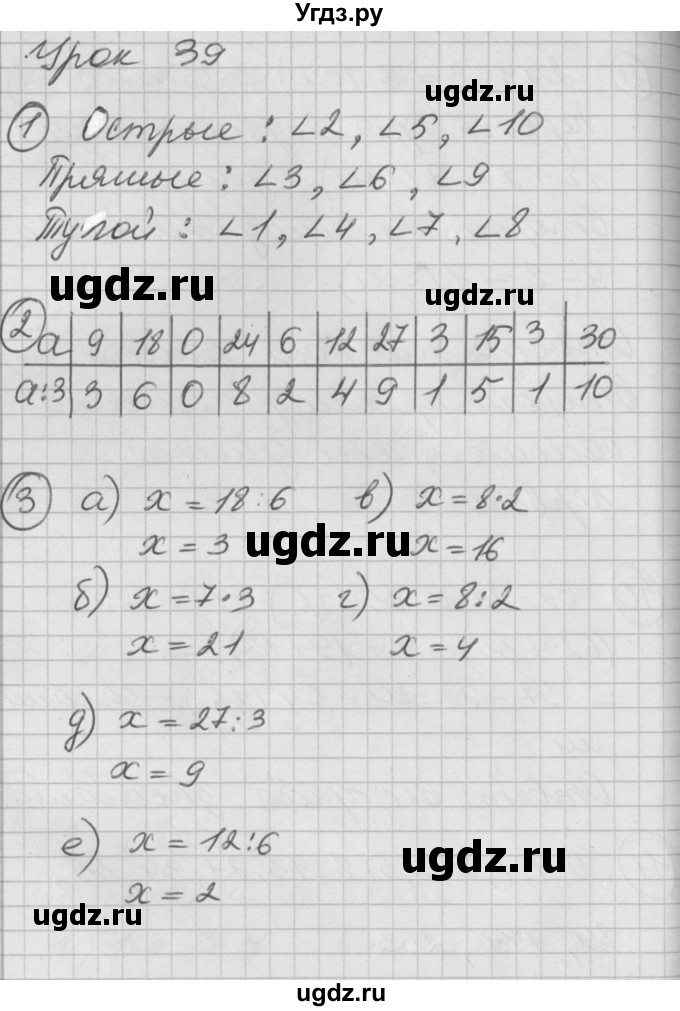 Угдз.ру
Урок 39
ugdz.ru
1 Острые: ∠2, ∠5, ∠10
Прямые: ∠3, ∠6, ∠9
Тупой: ∠1, ∠4, ∠7, ∠8
ugdz.ru
ugdz.ru
2 a 9 18 0 24 6 12 27 3 15 3 30
a:3 3 6 0 8 2 4 9 1 5 1 10
3 а) x = 18:6 в) x = 8·2
x = 3 x = 16
ugdz.ru
б) x = 7·3 г) x = 8:2
x = 21 x = 4
д) x = 27:3
x = 9
е) x = 12:6
x = 2
ugdz.ru
ugdz.ru
ugdz.ru